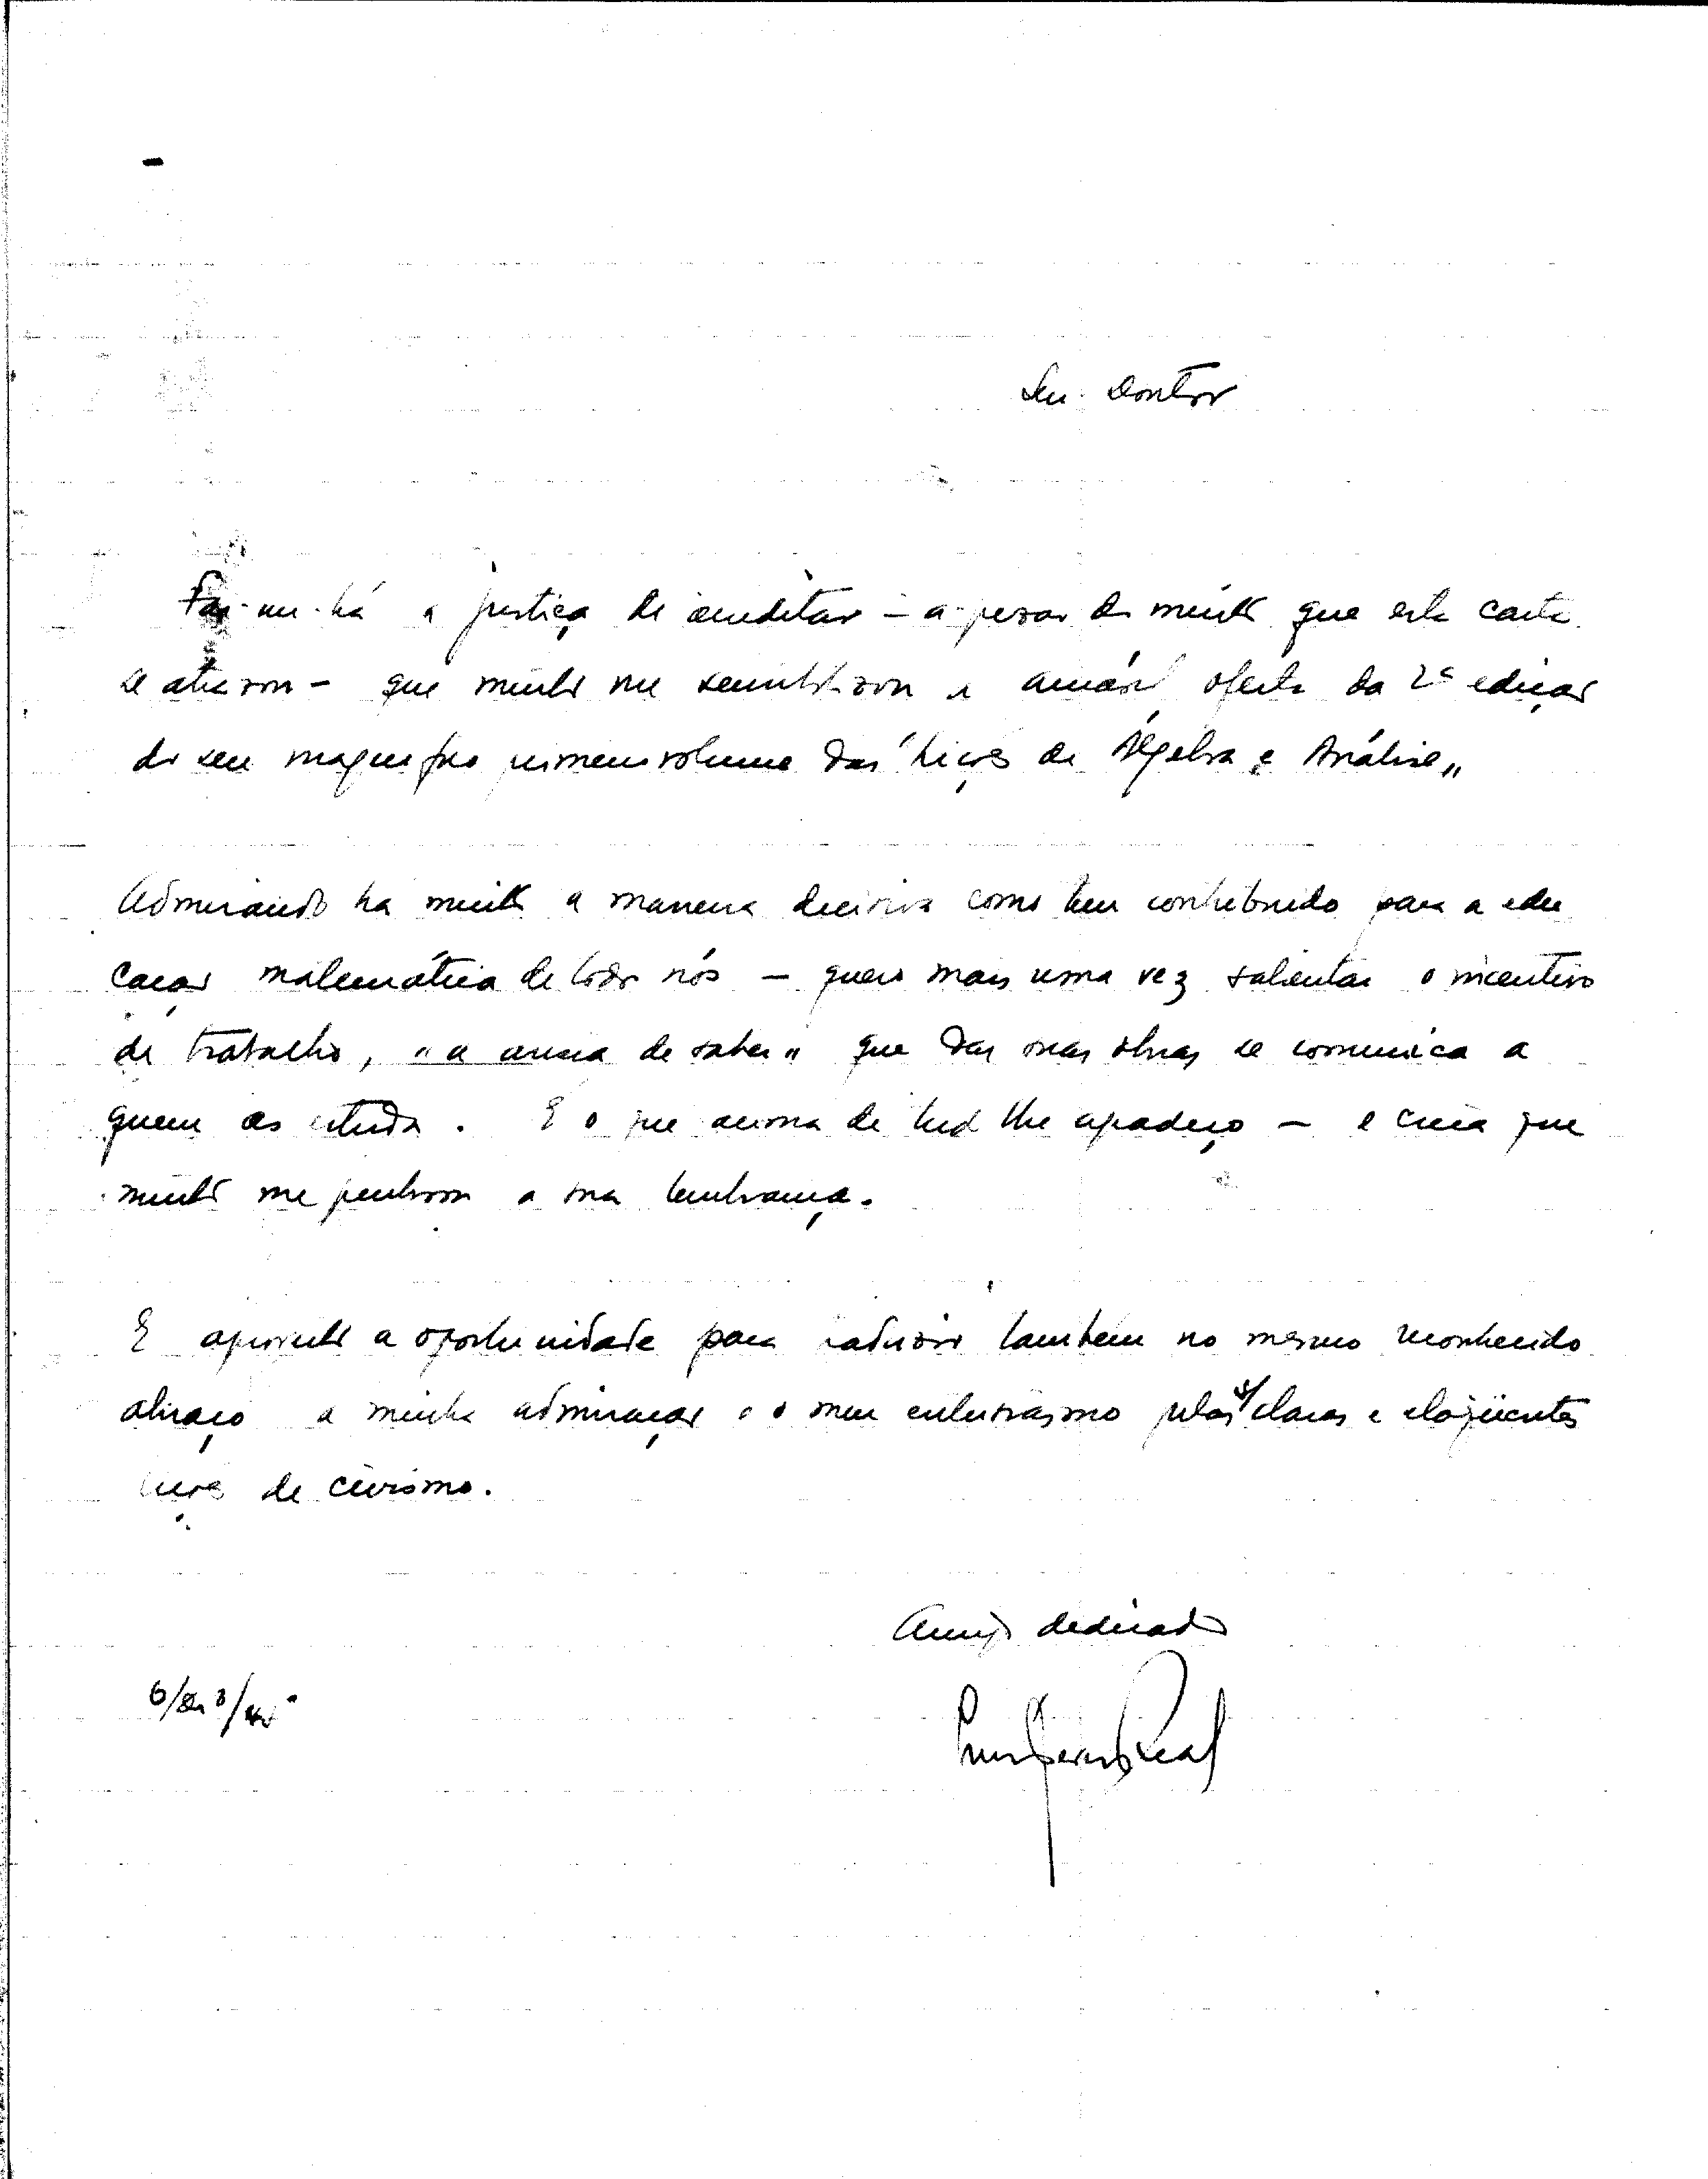 Sen. Doutor
Far-me-há a justiça de acreditar - a-pesar do muito que esta carta
se atrazou - que muito me sensibilizou a amável oferta da 2ª edição
do seu magnifico primeiro volume das "Lições de Álgebra e Análise"
Admirando ha muito a maneira decisiva como tem contribuido para a edu
cação matemática de todos nós - quero mais uma vez salientar o incentivo
de trabalho, "a ancia de saber" que das suas obras se comunica a
quem as estuda. É o que acima de tudo lhe agradeço - e creia que
muito me penhorou a sua lembrança.
E aproveito a oportunidade para traduzir tambem no mesmo reconhecido
abraço a minha admiração e o meu entusiasmo pelas s/ claras e eloqüentes
lições de civismo.
Amigo dedicado